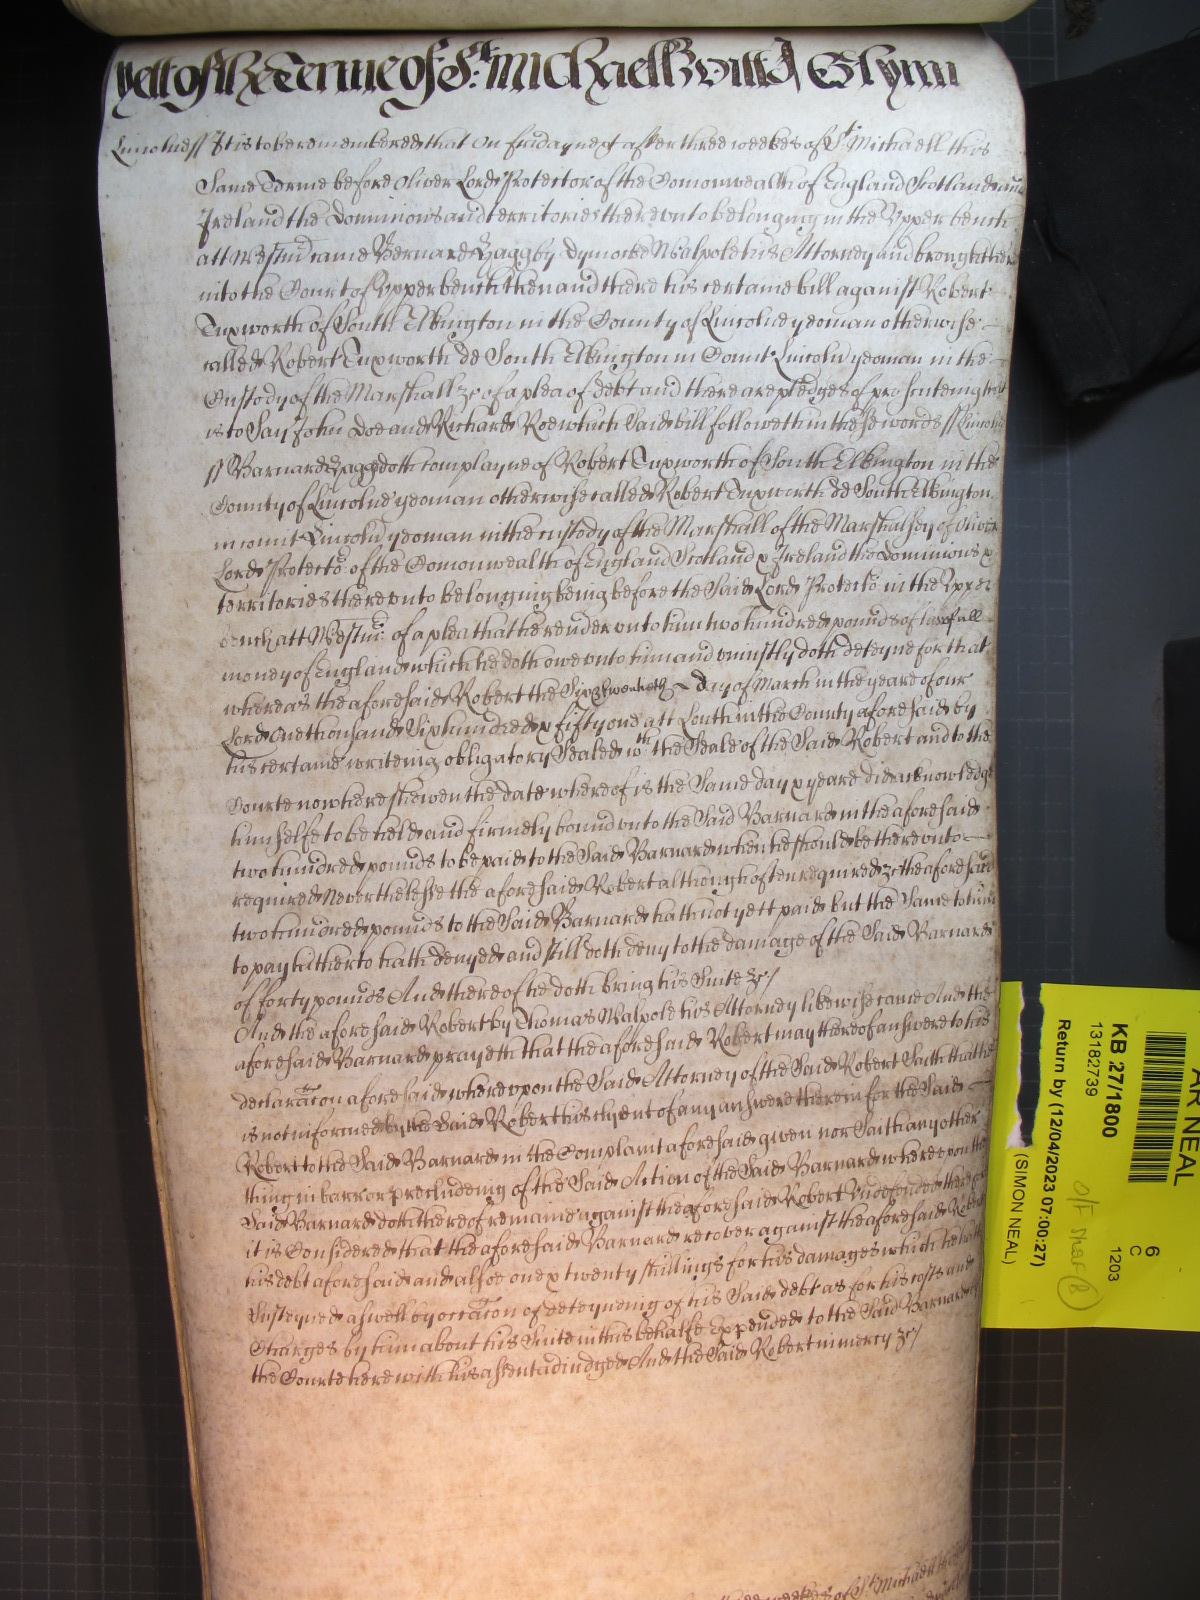 Yett of the Terme of St. Michaell Witt Glynn
Lincolne ss It is to be remembered that on friday next after three weekes of St Michaell this
Same Terme before Oliver Lord Protector of the Comonwealth of England Scotland and
Ireland the Dominions and territories therevnto belonging in the Vpper bench
att Westmr came Bernard by Dymocke Walpole his Attorney and brought here
into the Court of Vpper bench then and there his certaine bill against Robert
Tuxworth of South Elkington in the County of Lincolne yeoman otherwise
called Robert Tuxworth de South Elkington in Count Lincoln yeoman in the
Custody of the Marshall &c of a plea of debt and there are pledges of prosecuteing that
is to Say John Doe and Richard Roe which Said bill followeth in these words ss Lincolne
ss Barnard doth complayne of Robert Tuxworth of South Elkington in the
County of Lincolne yeoman otherwise called Robert Tuxworth de South Elkington
in count Lincoln yeoman in the custody of the Marshall of the Marshalsey of Oliver
Lord Protector of the Comonwealth of England Scotland & Ireland the Dominions &
territories therevnto belonging being before the Said Lord Protector in the Vpper
bench att Westmr of a plea that he render vnto him two hundred pounds of lawfull
money of England which he doth owe vnto him and vniustly doth deteyne for that
whereas the aforesaid Robert the Six & twentieth day of March in the yeare of our
Lord One thousand Six hundred & fifty one att Louth in the County aforesaid by
his certaine writeing obligatory Sealed wth the Seale of the Said Robert and to the
Courte now here shewen the date whereof is the Same day & yeare did acknowledge
himselfe to be held and firmely bound vnto the Said Barnard in the aforesaid
two hundred pounds to be paid to the Said Barnard when he should be therevnto
required Neverthelesse the aforesaid Robert although often required &c the aforesaid
two hundred pounds to the Said Barnard hath not yett paid but the Same to him
to pay hitherto hath denyed and still doth deny to the damage of the Said Barnard
of forty pounds And thereof he doth bring his Suite &c/
And the aforesaid Robert by Thomas Walpole his Attorney likewise came And the
aforesaid Barnard prayeth that the aforesaid Robert may thereof answere to his
declaracon aforesaid wherevpon the Said Attorney of the Said Robert Saith that he
is not informed by the Said Robert his clyent of any answere therein for the Said
Robert to the Said Barnard in the Complaint aforesaid given nor Saith any other
thing in barr or precludeing of the Said Action of the Said Barnard wherevpon the
Said Barnard doth thereof remaine against the aforesaid Robert Vndefended therefore
it is Considered that the aforesaid Barnard recover against the aforesaid Robert
his debt aforesaid and alsoe one & twenty shillings for his damages which he hath
Susteyned aswell by occacon of deteyneing of his Said debt as for his costs and
Charges by him about his Suite in this behalfe Expended to the Said Barnard by
the Courte here with his assent adiudged And the Said Robert in mercy &c/
weekes of St Michaell
AR NEAL
KB 27/1800
13182739
Return by (12/04/2023 07:00:27)
(SIMON NEAL)
6
C
1203